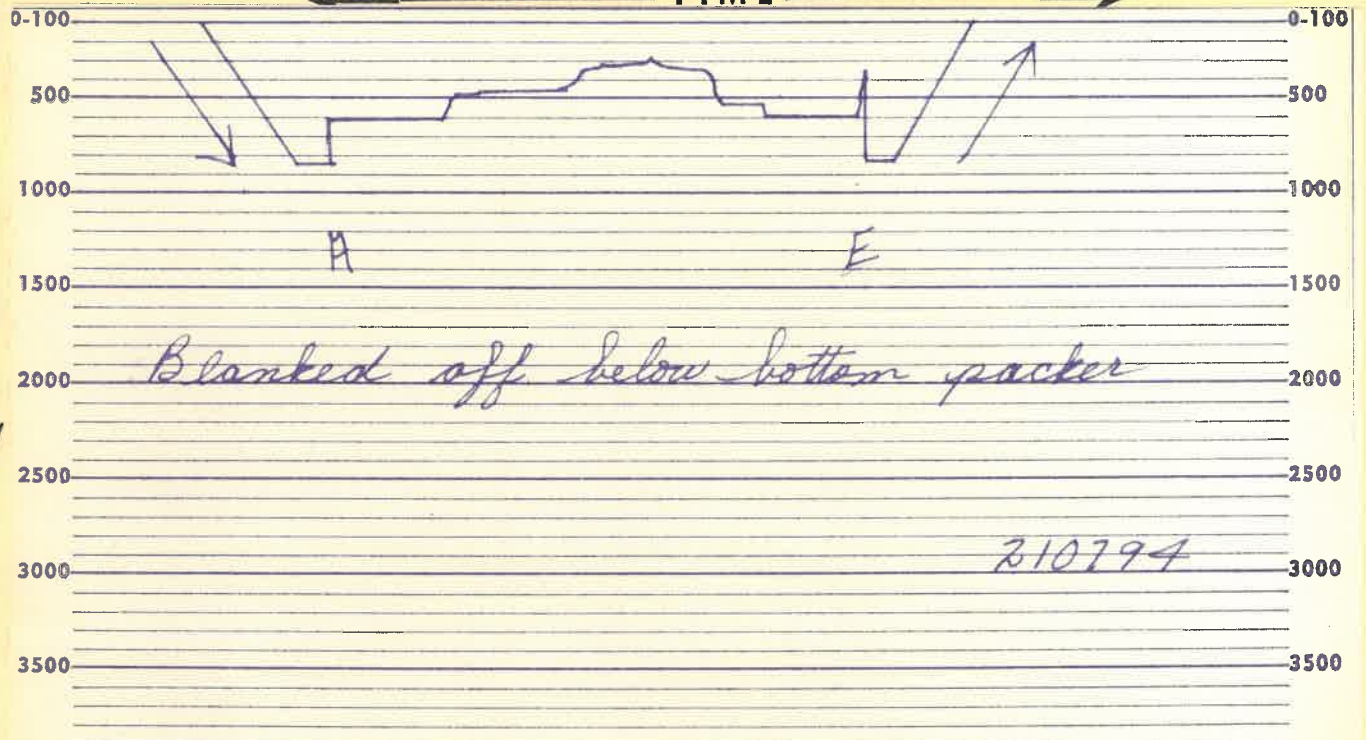 0-100 0-100
500 500
1000 1000
A E
1500 1500
Blanked off below bottom packer
2000 2000
2500 2500
210794
3000 3000
3500 3500